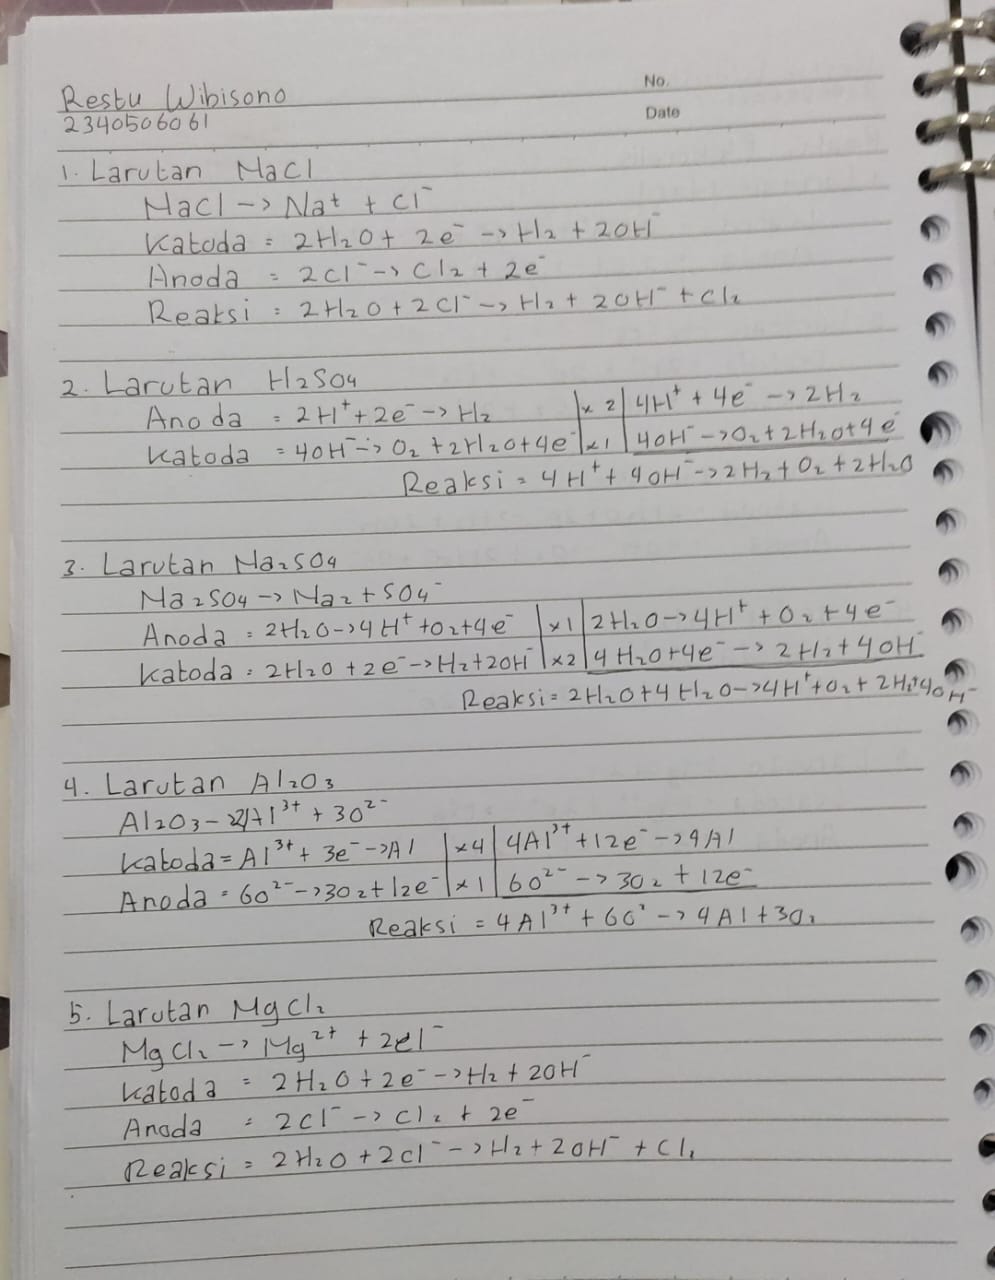 No.
Restu Wibisono
Date
2340506061
1. Larutan NaCl
NaCl -> Na+ + Cl⁻
Katoda = 2H₂O + 2e⁻ -> H₂ + 2OH⁻
Anoda = 2Cl⁻ -> Cl₂ + 2e⁻
Reaksi = 2H₂O + 2Cl⁻ -> H₂ + 2OH⁻ + Cl₂
2. Larutan H₂SO₄
Anoda = 2H⁺ + 2e⁻ -> H₂ | x 2 | 4H⁺ + 4e⁻ -> 2H₂
Katoda = 4OH⁻ -> O₂ + 2H₂O + 4e⁻ | x1 | 4OH⁻ -> O₂ + 2H₂O + 4e⁻
Reaksi = 4H⁺ + 4OH⁻ -> 2H₂ + O₂ + 2H₂O
3. Larutan Na₂SO₄
Na₂SO₄ -> Na₂ + SO₄⁻
Anoda = 2H₂O -> 4H⁺ + O₂ + 4e⁻ | x1 | 2H₂O -> 4H⁺ + O₂ + 4e⁻
Katoda = 2H₂O + 2e⁻ -> H₂ + 2OH⁻ | x2 | 4H₂O + 4e⁻ -> 2H₂ + 4OH⁻
Reaksi = 2H₂O + 4H₂O -> 4H⁺ + O₂ + 2H₂ + 4OH⁻
4. Larutan Al₂O₃
Al₂O₃ -> 2Al³⁺ + 3O²⁻
Katoda = Al³⁺ + 3e⁻ -> Al | x4 | 4Al³⁺ + 12e⁻ -> 4Al
Anoda = 6O²⁻ -> 3O₂ + 12e⁻ | x1 | 6O²⁻ -> 3O₂ + 12e⁻
Reaksi = 4Al³⁺ + 6O² -> 4Al + 3O₂
5. Larutan MgCl₂
MgCl₂ -> Mg²⁺ + 2Cl⁻
Katoda = 2H₂O + 2e⁻ -> H₂ + 2OH⁻
Anoda = 2Cl⁻ -> Cl₂ + 2e⁻
Reaksi = 2H₂O + 2Cl⁻ -> H₂ + 2OH⁻ + Cl₂